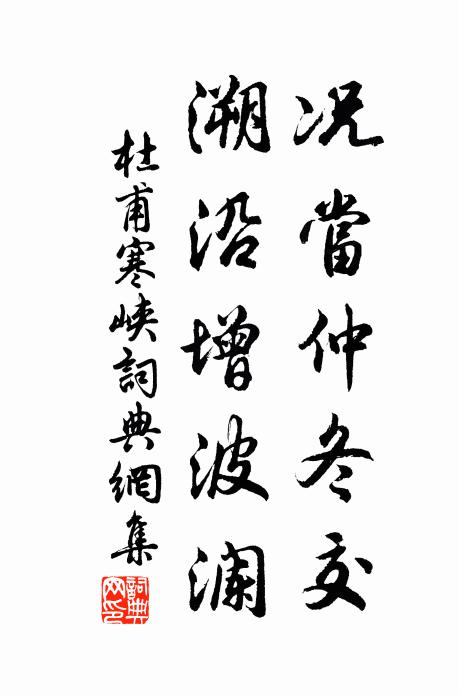 况當仲冬交
溯沿增波澜
杜甫寒峽詞典網集
詞典
网印